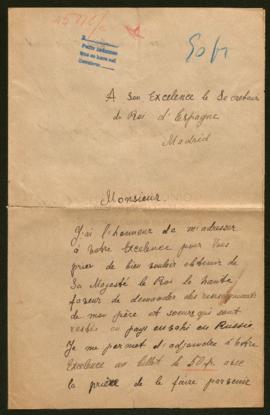 45776/2
50 fr
A Son Excelence le Secretaire
du Roi d'Espagne
Madrid
Monsieur.
J'ai l'honneur de m'adresser
à Votre Excelence pour Vous
prier de bien vouloir obtenir de
Sa Majesté le Roi la haute
faveur de demander des renseignements
de mon père et soeurs qui sont
restés au pays envahi en Russie
Je me permet d'adjoindre à Votre
Excelence un billet de 50 fr. avec
la prière de la faire parvenir